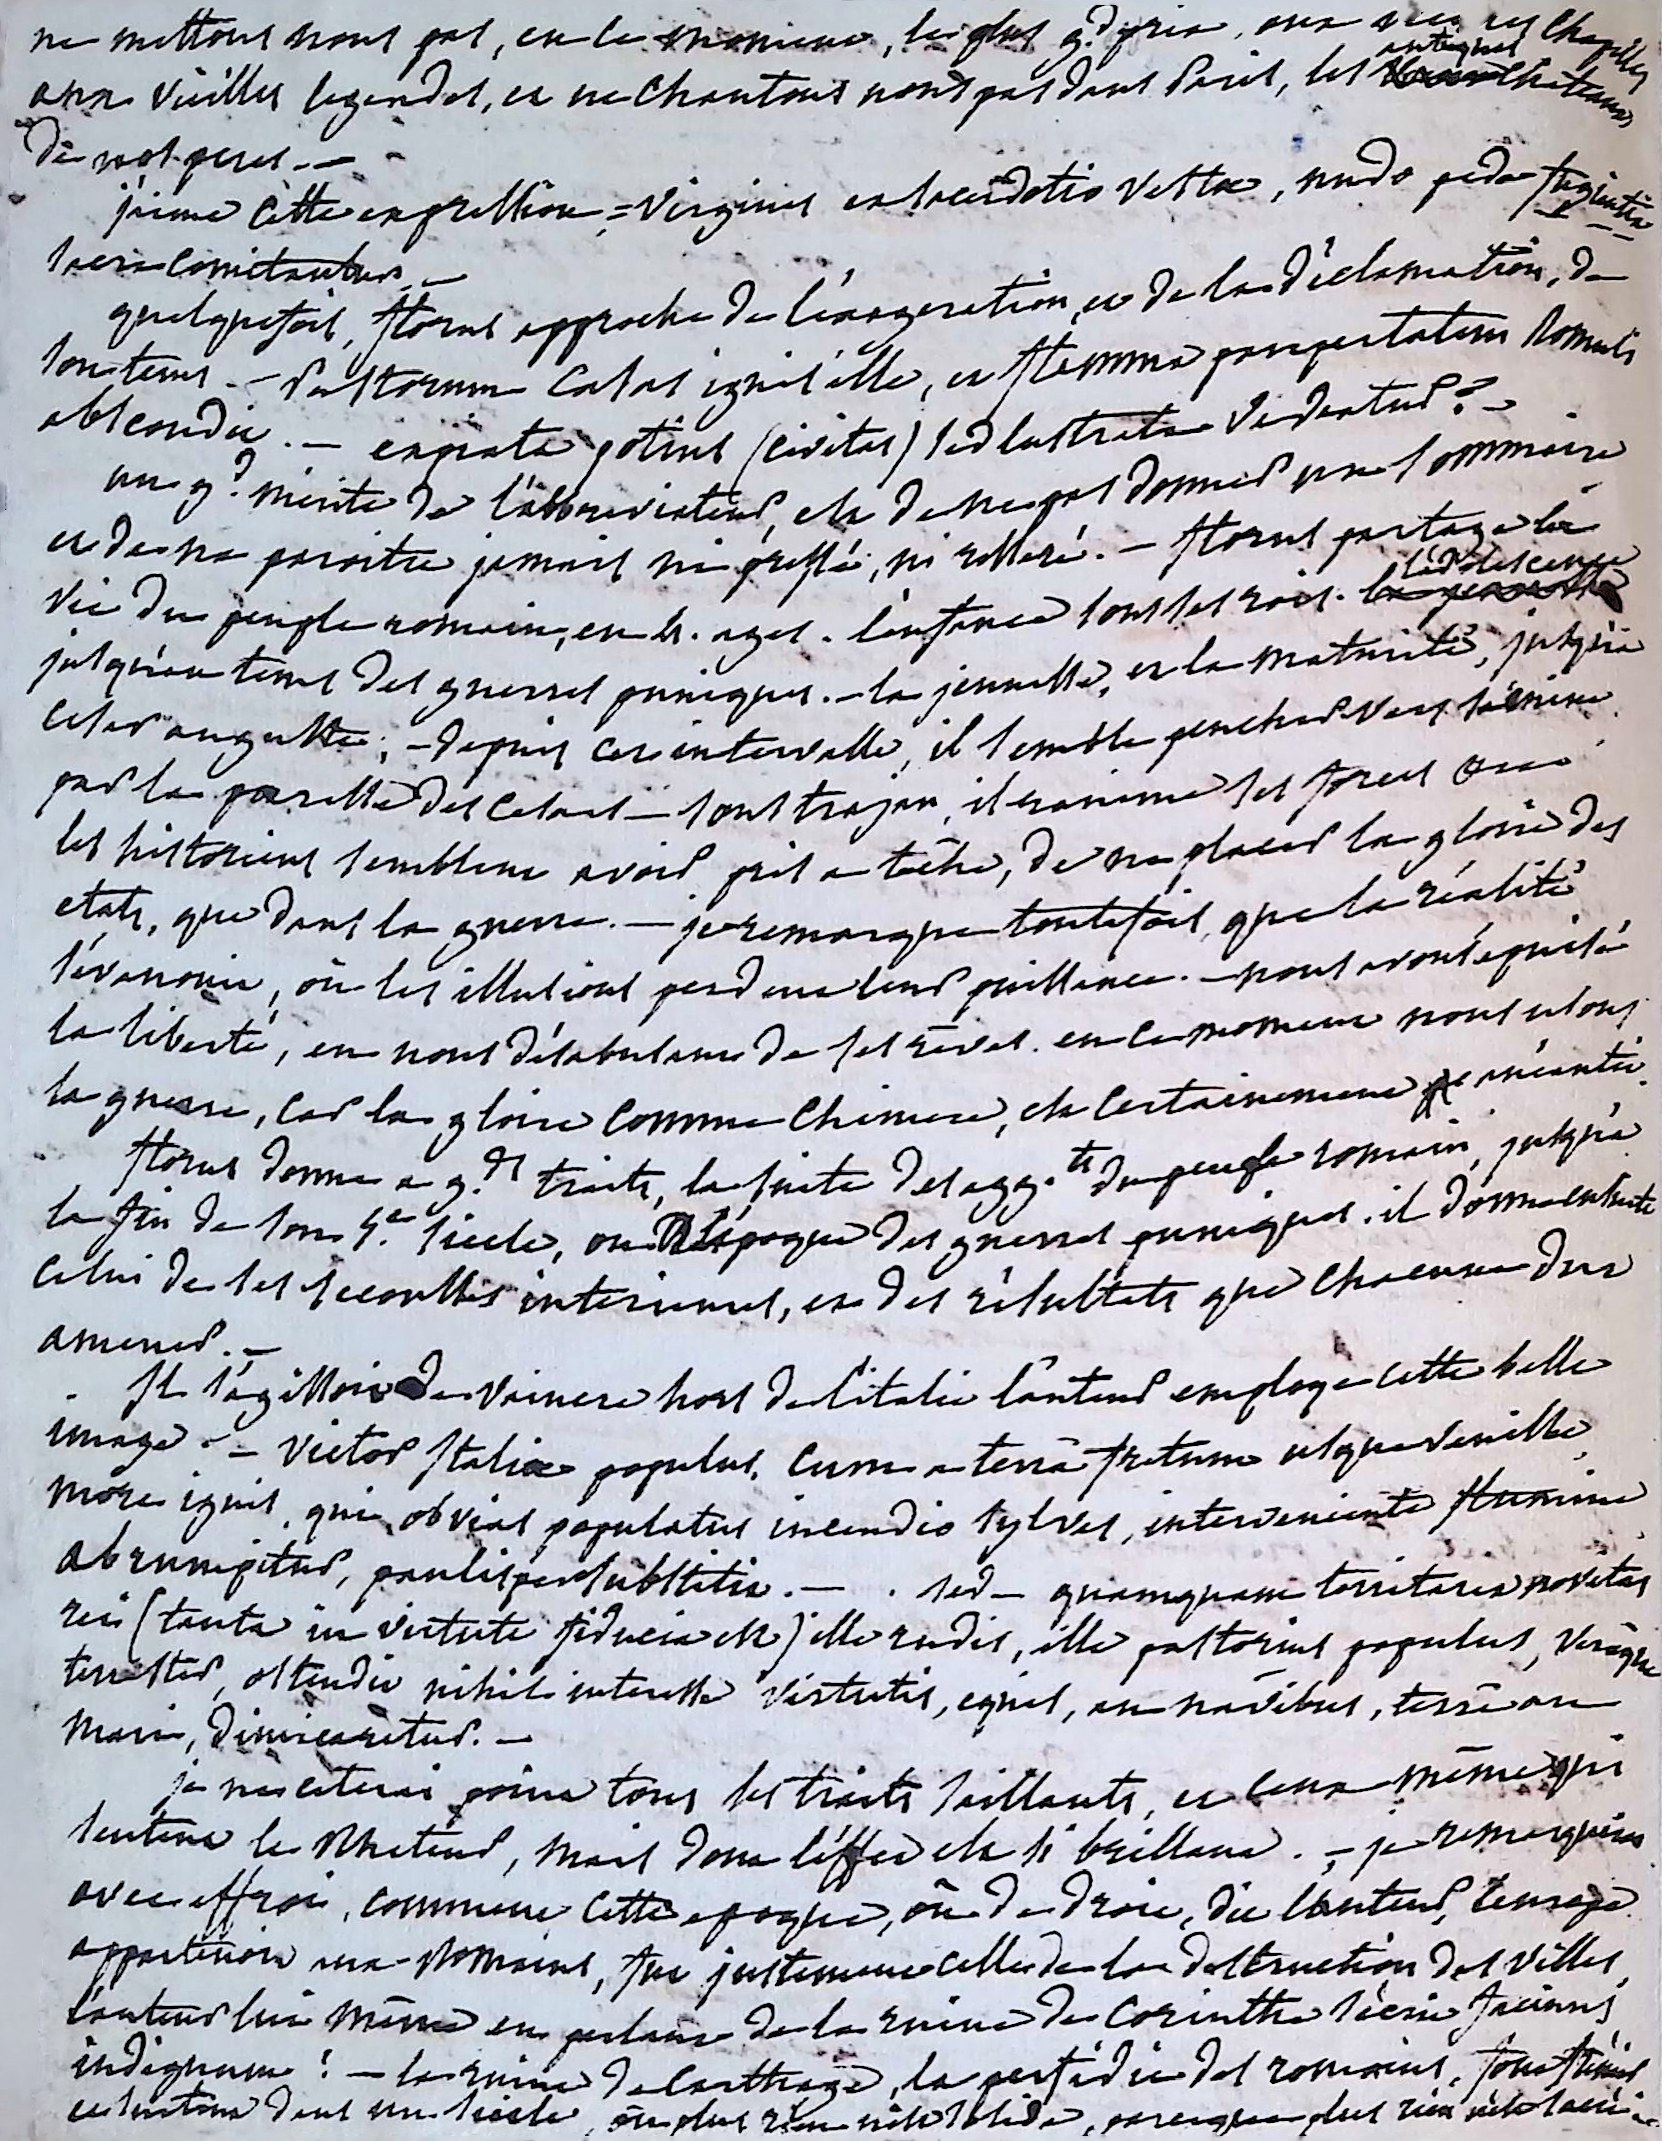 ne mettons nous pas, en ce moment, le plus gd. prix, aux vieilles chapelles
aux vieilles legendes, et ne chantons nous pas dans Paris, les antiques chateaux
de nos peres. —
j'aime cette expression = virgines ex sacerdotio Vestae, nudo pede fugientia
sacra comitantur. —
quelquefois, florus approche de l'éxageration, et de la déclamation, de
son tems. — Pastorum casas ignis ille, et flamma paupertatem Romuli
abscondit. — expiata potius (civitas) sed lustrata videatur? —
un gd. merite de l'abbreviateur, est de ne pas donner un sommaire
et de ne paroitre jamais ni pressé, ni resseré. — florus partage la
vie du peuple romain, en 4. ages. l'enfance sous les rois. l'adolescence
jusqu'au tems des guerres puniques. — la jeunesse, et la maturité, jusqu'à
cesar auguste; — depuis cet intervalle, il semble pencher vers sa ruine
par la paresse des Cesars — sous trajan, il ranime ses forces
les historiens semblent avoir pris a tâche, de ne placer la gloire des
etats, que dans la guerre. — je remarque toutefois, que la réalité
s'évanouit, où les illusions perdent leur puissance. — nous avons épuisé
la liberté, en nous désabusant de ses rêves. en ce moment nous usons
la guerre, car la gloire comme chimere, est certainement anéantie.
florus donne a gds. traits, la suite des agg.ts du peuple romain, jusqu'à
la fin de son 5e. siecle, ou l'époque des guerres puniques. il donne ensuite
celui de ses secousses interieures, et des résultats que chacune dut
amener. —
s'il s'agissoit de vaincre hors de l'italie l'auteur employe cette belle
image. — victor Italiae populus, cum a terrâ fretum usque venisset,
more ignis, qui obvias populatus incendio sylvas, interveniente flumine
abrumpitur, paulisper substitit. — . sed — quamquam territaret novitas
rei (tanta in virtute fiducia est) ille rudis, ille pastorius populus, verèque
terrester, ostendit nihil interesse virtutis, equis, an navibus, terrâ an
mari, dimicaretur. —
je ne citerai point tous les traits saillants, et ceux même qui
sentent le Rheteur, mais dont l'effet est si brillant. — je remarquerai
avec effroi, comment cette epoque, où de droit, dit l'auteur, l'empire
appartenoit aux Romains, fut justement celle de la destruction des villes,
l'auteur lui même en parlant de la ruine de Corinthe s'écrie facinus
indignum! — la ruine de Carthage, la perfidie des romains,
dans un siecle, où plus rien n'est solide, parceque plus rien n'est sacré.